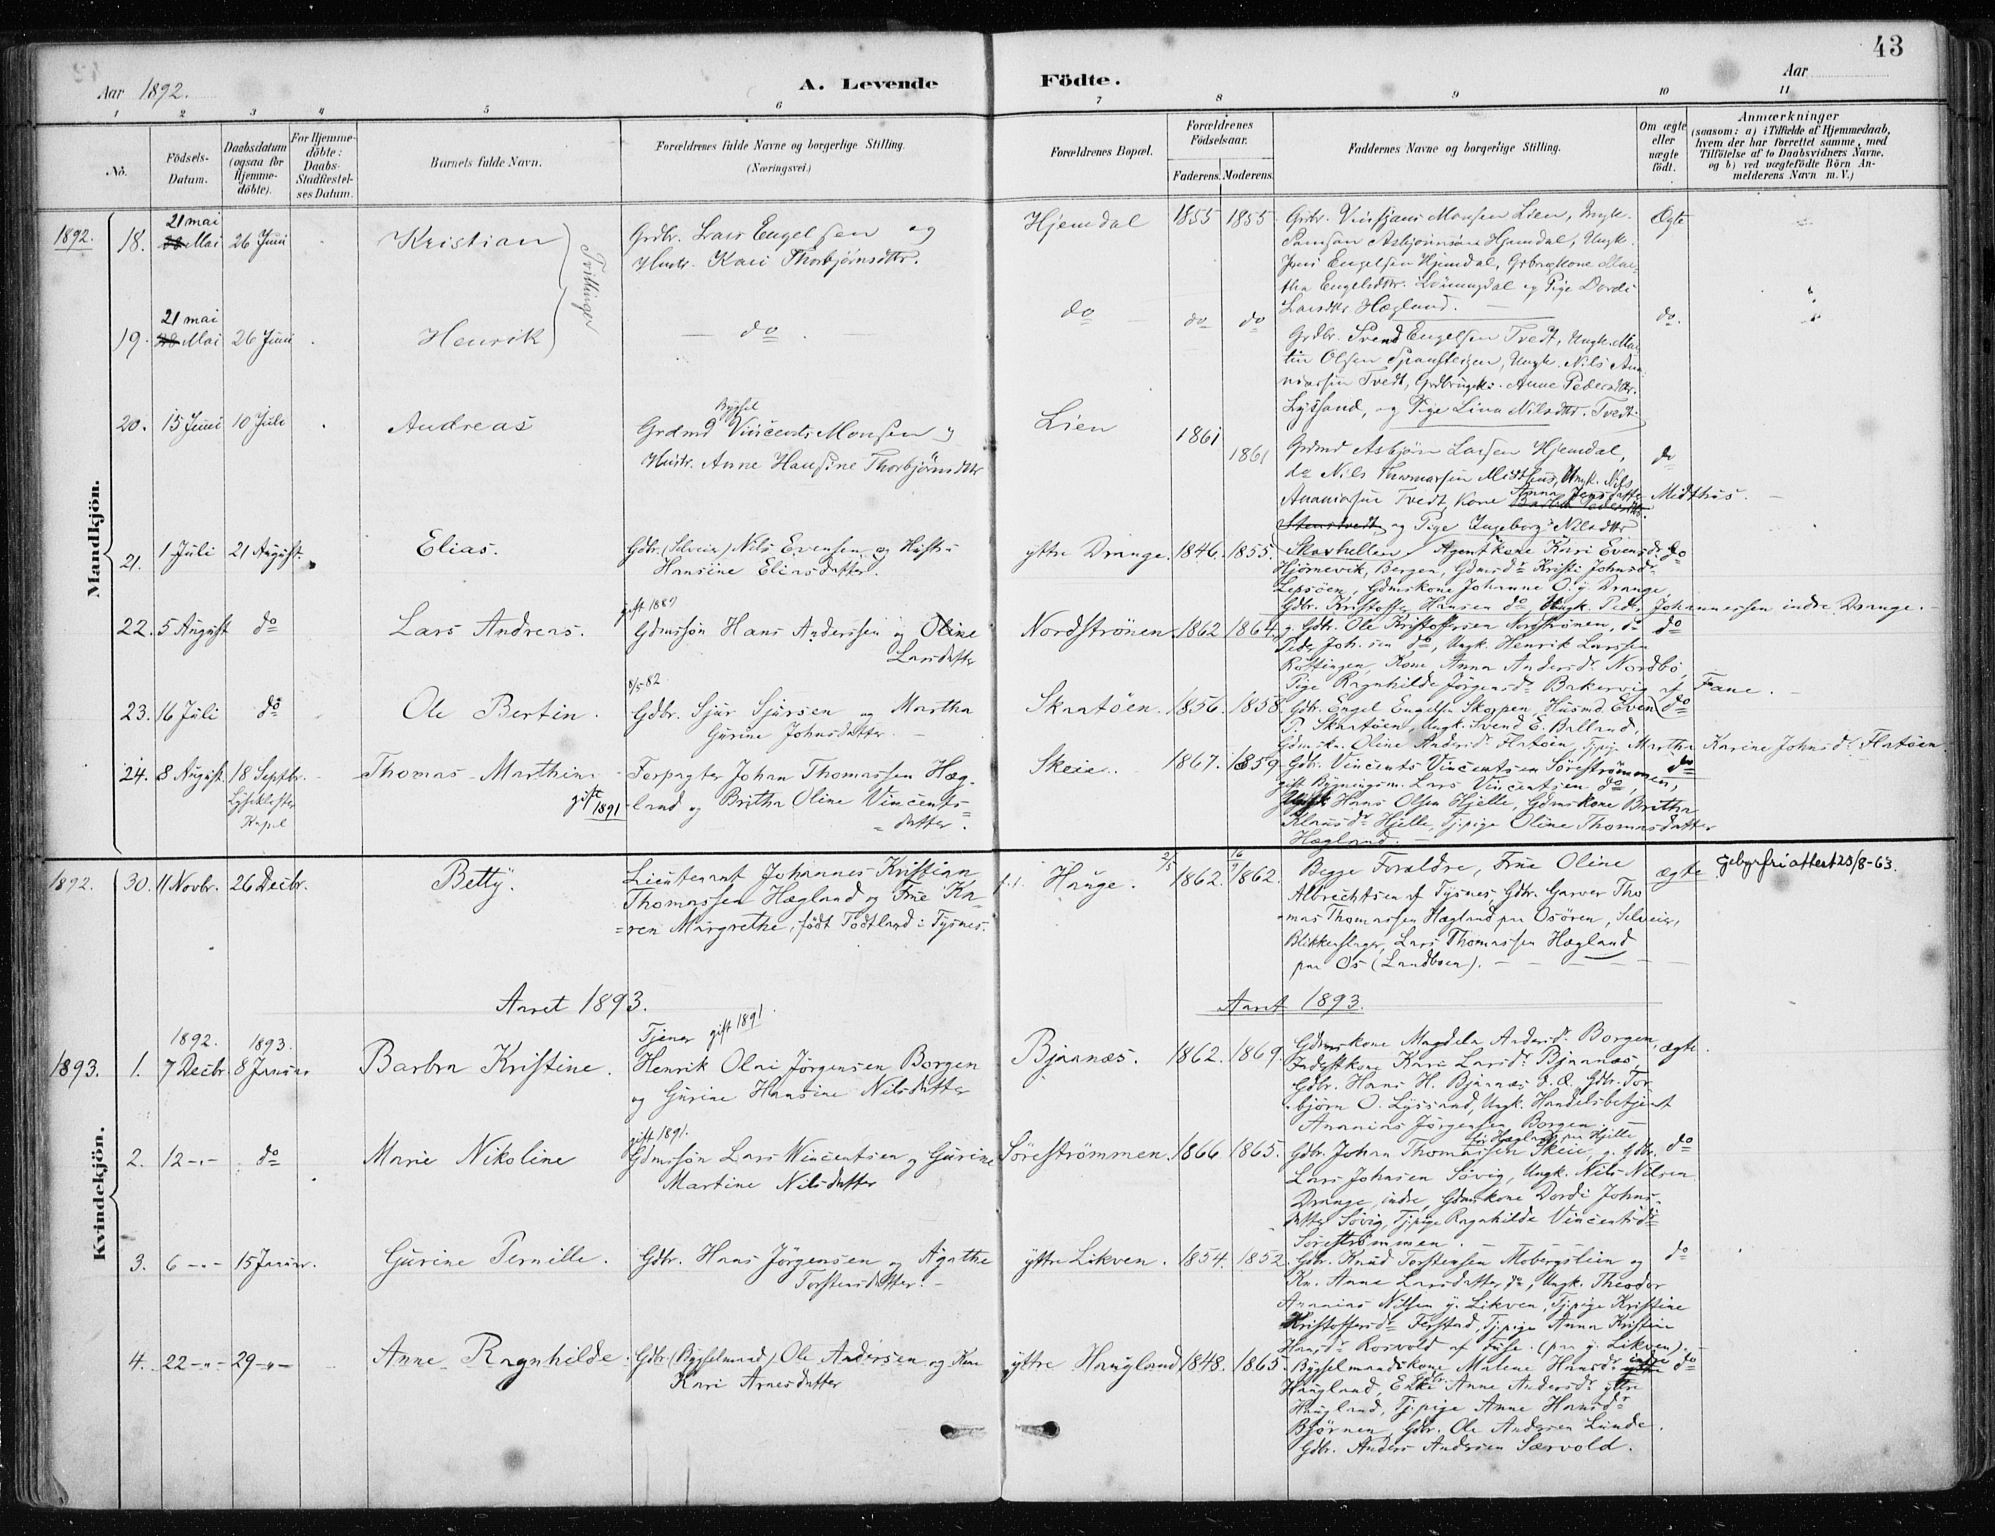 43
Aar 1892. A. Levende Födte. Aar
1 2 3 4 5 6 7 8 9 10 11
No.
Födsels-Datum.
Daabsdatum (ogsaa for Hjemme-döbte).
For Hjemme-döbte: Daabs-Stadfæstel-ses Datum.
Barnets fulde Navn.
Forældrenes fulde Navne og borgerlige Stilling.
(Næringsvei.)
Forældrenes Bopæl.
Forældrenes Födselsaar.
Faderens. Moderens.
Faddernes Navne og borgerlige Stilling.
Om ægte eller uægte födt.
Anmærkninger
(saasom: a) i Tilfælde af Hjemmedaab, hvem der har forrettet samme, med Tilföielse af to Daabsvidners Navne, og b) ved uægtefödte Börn An-melderens Navn m. V.)
Mandkjön.
1892. 18. 21 mai Mai 26 Juni Kristian Tvillinger
Grdbr. Lars Engelsen og
Hustr. Kari Thorbjørnsdttr.
Hjemdal 1855 1855
Grbr. Vinsjans Monsen Lien, Ungk.
Samson Asbjørnsøn Hjemdal, Ungk.
Jens Engelsen Hjemdal, Grbrugkone Mar-
tha Engelsdttr. og Pige Dordi
Larsdttr Hægland.
Ægte
19. 21 mai Mai 26 Juni Henrik
do
do do do
Grdbr. Svend Engelsen Tvedt, Ungk. Mar-
tin Olsen Ungk. Nils An-
niassen Tvedt, Grdbrugek. Anne Pedersdttr.
Lyssand, og Pige Lina Nilsdttr. Tvedt
do.
20. 15 Juni 10 Juli Andreas
Bygsel
Grdmd Vincents Monsen og
Hustr. Anne Hansine Thorbjørnsdttr
Lien 1861 1861
Grdmd Asbjørn Larsen Hjemdal,
do Nils Midthus, Ungk. Nils
Ananiasen Tvedt, Kone Anna Jensdatter Midthus.
og Pige Ingeborg Nilsdttr
do
21. 1 Juli 21 August. Elias.
Gdbr. (Selveier) Nils Evensen og Hustru
Hansine Eliasdatter.
yttre Drange. 1846. 1855.
Skorhellen. Agentkone Kari Evensdr. do
Hjørnevik, Bergen, Gdmsdr Kristi Johnsdr
Lepsöen, Gdmskone Johanne O. y. Drange,
Gdbr. Kristoffer Hansen do, Ungk. Peder Johannessen indre Drange.
22. 5 August do Lars Andreas.
gift 1887
Gdmssøn Hans Anderssen og Oline
Larsdatter
Nordstrønen. 1862 1864.
g. Gdbr. Ole Kristoffersen Nordstrønen, do
Peder Joh.sen do, Ungk. Henrik Larssen
Röttingen, Kone Anna Andersdr Nordbö,
Pige Ragnhilde Jörgensdr Bakervig af Fane.
do
23. 16 Juli do Ole Bertin.
8/5 82
Gdbr. Sjur Sjursen og Martha
Gurine Johnsdatter.
Skaatöen. 1856. 1858.
Gdbr. Engel Engelsen Skorpen, Husmd. Even
P. Skaatöen, Ungk. Svend E. Balland,
Gdmsk. Oline Andersdr Flatöen, Tj.pig. Martha Karine Johnsdr Flatöen.
do
24. 8 August. 18 Septbr. Thomas Marthin
Lysekloster Kapel
gift 1891
Forpagter Johan Thomassen Hæg-
land og Britha Oline Vincents-
datter.
Skeie. 1867. 1859.
Gdbr. Vincents Vincentsen Sörestrømmen,
gift Bygningsm. Lars Vincentsen do,
Hans Olsen Hjelle, Gdmskone Britha
Klausdr Hjelle, Tj.pige Oline Thomasdatter
Hægland.
do
Kvindekjön.
1892. 30. 11 Novbr. 26 Decbr. Betty.
Lieutenant Johannes Kristian
Thomassen Hægland og Frue Ka-
ren Margrethe, født Tødtland i Tysnes.
Hauge. 2/5 1862. 1862.
Begge Forældre, Frue Oline
Albrechtsen af Tysnes, Gdbr. Garver Tho-
mas Thomassen Hægland paa Osören, Selveier,
Blikkenslager, Lars Thomassen Hægland
paa Os (Landboen).
ægte
Gebyrfri attest 23/8-63.
Aaret 1893. Aaret 1893.
1893. 1. 1892. 7 Decbr. 1893. 8 Januar Barbra Kristine.
Tjener gift 1891
Henrik Olai Jørgensen Borgen
og Gurine Hansine Nilsdatter
Bjånæs. 1862. 1869.
Gdmskone Magdela Andersdr Borgen,
Indstkone Kari Larsdr Bjaanæs
Gdbr. Hans H. Bjaanæs g. Gdbr. Tor-
björn O. Lyssand, Ungk. Handelsbetjent
Ananias Jörgensen Borgen.
ægte.
2. 12 do Marie Nikoline
gift 1891.
Gdmssøn Lars Vincentsen og Gurine
Martine Nilsdatter
Sörestrømmen. 1866. 1865.
Gdbr. Johan Thomassen Skeie, g. Gdbr.
Lars Johnsen Søvig, Ungk. Nils Nilsen
Drange, indre, Gdmskone Dordi Johns-
datter Søvig, Tj.pige Ragnhilde Vincentsdr
Sörestrømmen.
do
3. 6 15 Januar. Gurine Pernille.
Gdbr. Hans Jörgensen og Agathe
Torstensdatter.
yttre Likven. 1854. 1852
Gdbr. Knud Torstensen Mobergslien og
Kn. Anne Larsdatter do, Ungk. Theodor
Ananias Nilsen y. Likven, Tj.pige Kristine
Kristoffersdr Ferstad, Tj.pige Anna Kristine
Hansdr Rosvold af Fuse. (paa y. Likven).
do
4. 22 29 Anne Ragnhilde.
Gdbr. (Bygselmand) Ole Andersen og Kone
Kari Arnesdatter
yttre Haugland 1848. 1865.
Bygselmandskone Malene Hansdr indre
Haugland, Enke Anne Andersdr yttre
Haugland, Tj.pige Anne Hansdr
Björnen, Gdbr. Ole Andersen Lunde.
Gdbr. Anders Andersen Særvold.
do